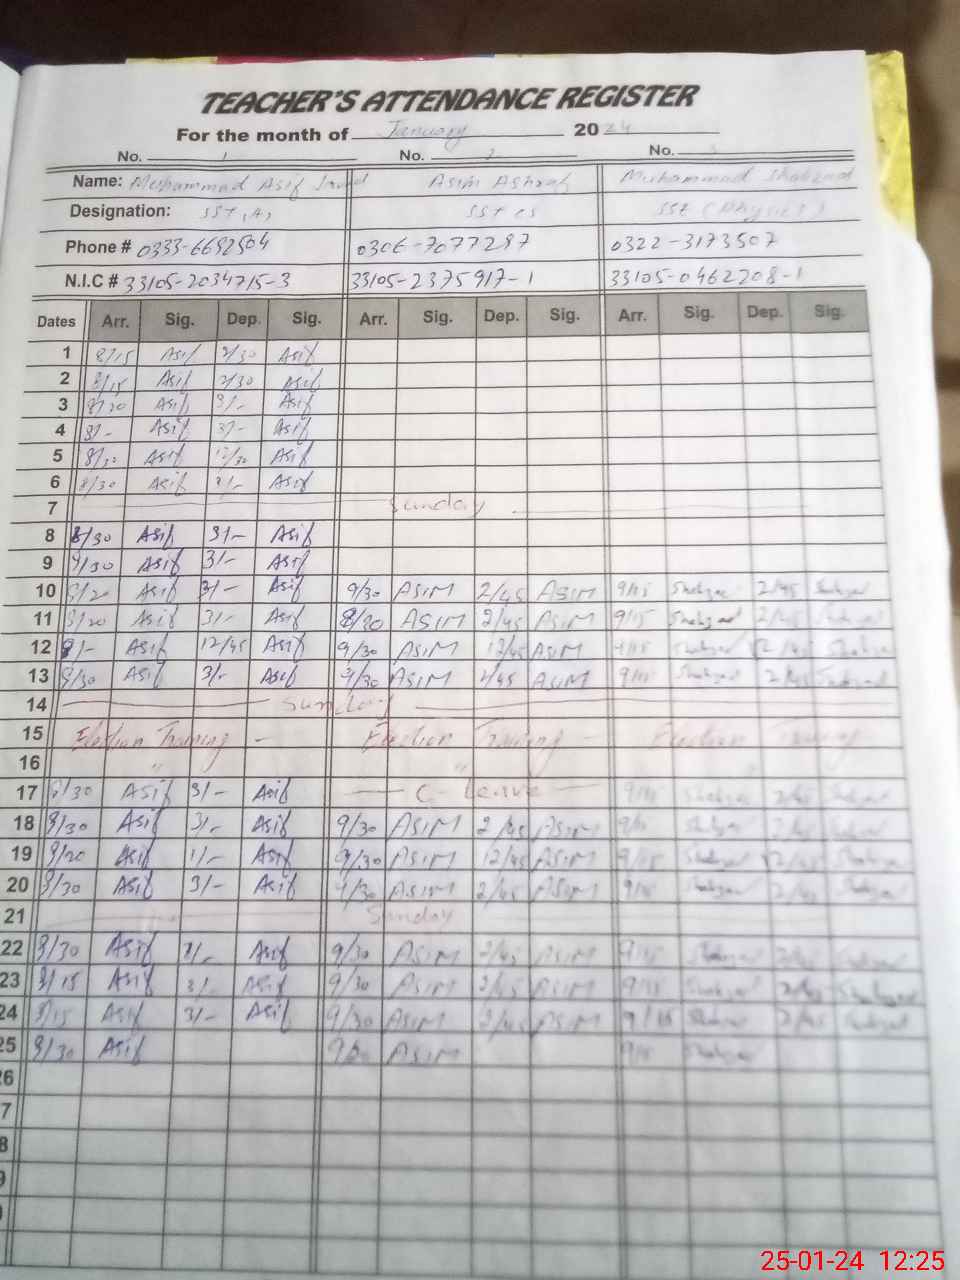 TEACHER'S ATTENDANCE REGISTER
For the month of January 2024
No. 1 No. 2 No. 3
Name: Muhammad Asif Asim Ashraf Muhammad Shahzad
Designation: SST (A) SST CS SST (Physics)
Phone # 0333-6692504 0306-7077287 0322-3173507
N.I.C # 33105-2034715-3 33105-2375917-1 33105-0462208-1
Dates Arr. Sig. Dep. Sig. Arr. Sig. Dep. Sig. Arr. Sig. Dep. Sig.
1 8/15 Asif 2/30 Asif
2 8/15 Asif 2/30 Asif
3 8/20 Asif 3/- Asif
4 8/- Asif 3/- Asif
5 8/30 Asif 12/30 Asif
6 8/30 Asif Asif
7 Sunday
8 8/30 Asif 3/- Asif
9 9/30 Asif 3/- Asif
10 Asif 3/- Asif 9/30 ASIM 2/45 ASIM 9/15 Shahzad 2/45 Shahzad
11 Asif 3/- Asif 8/20 ASIM 2/45 ASIM 9/15 Shahzad 2/45 Shahzad
12 8/- Asif 12/45 Asif 9/30 ASIM 12/45 ASIM 9/15 Shahzad 12/45 Shahzad
13 Asif 3/- Asif 9/30 ASIM 2/45 ASIM 9/15 Shahzad 2/45 Shahzad
14 Sunday
15 Election Training - Election Training - Election Training
16 " "
17 Asif 3/- Asif C-Leave 9/15 Shahzad 2/45 Shahzad
18 Asif 3/- Asif 9/30 ASIM 2/45 ASIM 9/15 Shahzad 2/45 Shahzad
19 Asif 1/- Asif 9/30 ASIM 12/45 ASIM 9/15 Shahzad 12/45 Shahzad
20 Asif 3/- Asif 9/30 ASIM 2/45 ASIM 9/15 Shahzad 2/45 Shahzad
21 Sunday
22 8/30 Asif Asif 9/30 ASIM 2/45 ASIM 9/15 Shahzad 2/45 Shahzad
23 8/15 Asif 3/- Asif 9/30 ASIM 2/45 ASIM 9/15 Shahzad 2/45 Shahzad
24 Asif 3/- Asif 9/30 ASIM 2/45 ASIM 9/15 Shahzad 2/45 Shahzad
25 Asif ASIM 9/15 Shahzad
26
7
8
9
25-01-24 12:25